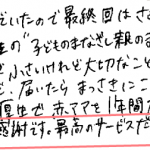 だいたので最終回はさ
生の"子どものまなざし 親のま
ど小さいけれど大切なこと
ど…届いたらまっさきにこ
厚生で、赤ママを1年間
感謝です。最高のサービスだ